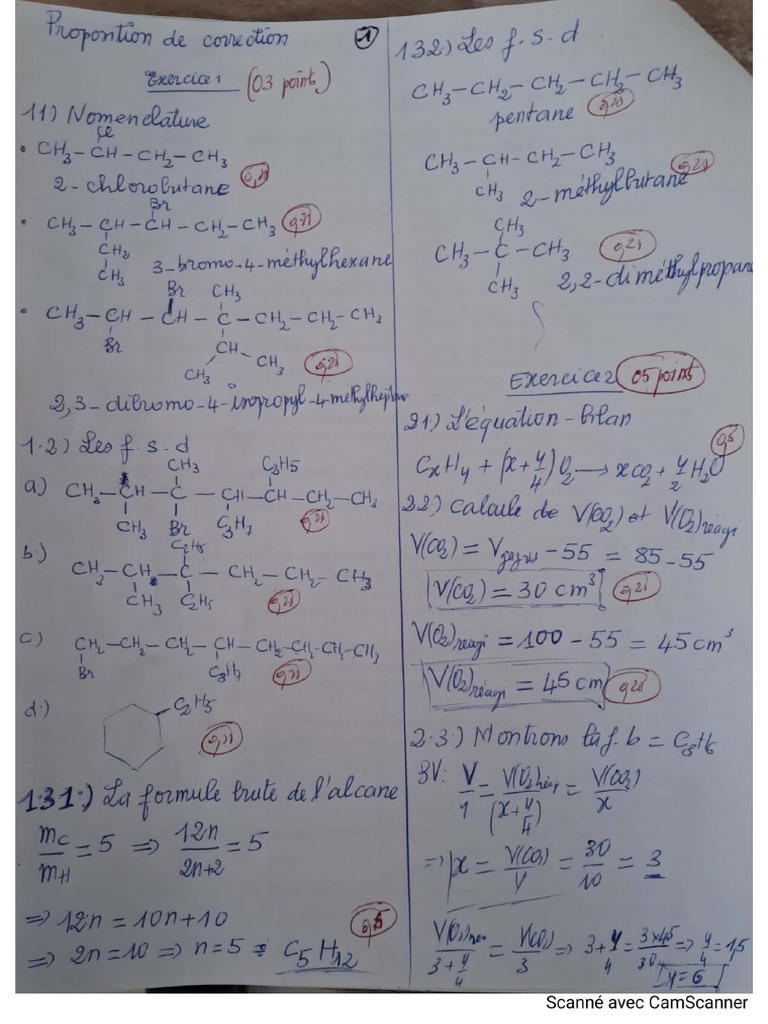 Proposition de correction
1
Exercice 1 (03 points)
11) Nomenclature
Cl
• CH3 – CH – CH2 – CH3
2 - chlorobutane 0,25
Br
• CH3 – CH – CH – CH2 – CH3 0,25
CH2
CH3 3-bromo-4-méthylhexane
Br CH3
• CH3 – CH – CH – C – CH2 – CH2 – CH3
Br CH – CH3
CH3 0,25
2,3-dibromo-4-isopropyl-4-méthylheptane
1.2) Les f.s.d
CH3 C2H5
a) CH3 – CH – C – CH – CH – CH2 – CH3
CH3 Br C3H7 0,25
C2H5
b) CH3 – CH – C – CH2 – CH2 – CH3
CH3 C2H5 0,25
c) CH2 – CH2 – CH2 – CH – CH2 – CH2 – CH2 – CH3
Br C3H7 0,25
d) C2H5
0,25
1.31) La formule brute de l'alcane
mC/mH = 5 ⇒ 12n/2n+2 = 5
⇒ 12n = 10n + 10 0,5
⇒ 2n = 10 ⇒ n = 5 : C5H12
132) Les f.s.d
CH3 – CH2 – CH2 – CH2 – CH3
pentane 0,25
CH3 – CH – CH2 – CH3 0,25
CH3 2-méthylbutane
CH3
CH3 – C – CH3 0,25
CH3 2,2-diméthylpropane
Exercice 2 05 points
21) L'équation-bilan
0,5
CxHy + (x + y/4) O2 → xCO2 + y/2 H2O
22) Calcule de V(CO2) et V(O2)réagi
V(CO2) = Vgazeux – 55 = 85 – 55
V(CO2) = 30 cm³ 0,25
V(O2)réagi = 100 – 55 = 45 cm³
V(O2)réagi = 45 cm 0,25
2.3) Montrons la f.b = C3H6
BV: V/1 = V(O2)réagi/(x + y/4) = V(CO2)/x
⇒ x = V(CO2)/V = 30/10 = 3
V(O2)réa/3 + y/4 = V(CO2)/3 ⇒ 3 + y/4 = 3×45/30 ⇒ y/4 = 1,5
y = 6
Scanné avec CamScanner